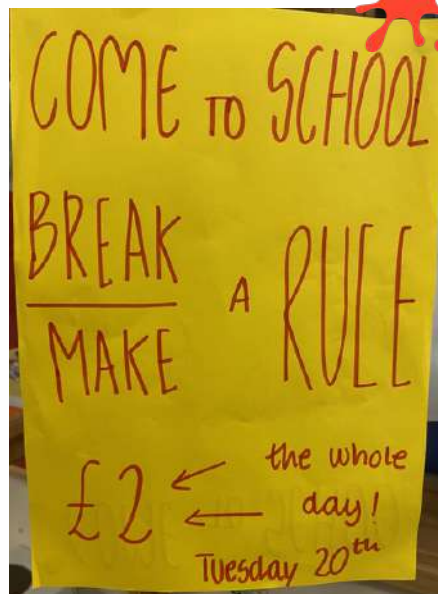 COME TO SCHOOL
BREAK
MAKE
A RULE
£2
the whole
day!
Tuesday 20th